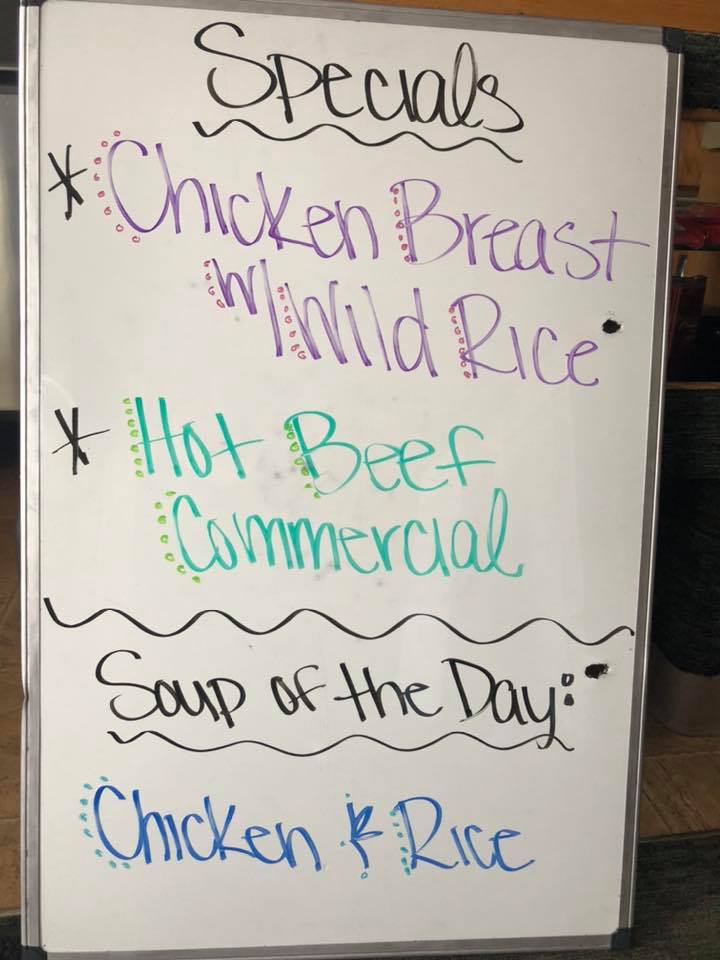 Specials
* Chicken Breast
w/Wild Rice
* Hot Beef
Commercial
Soup of the Day:
Chicken & Rice